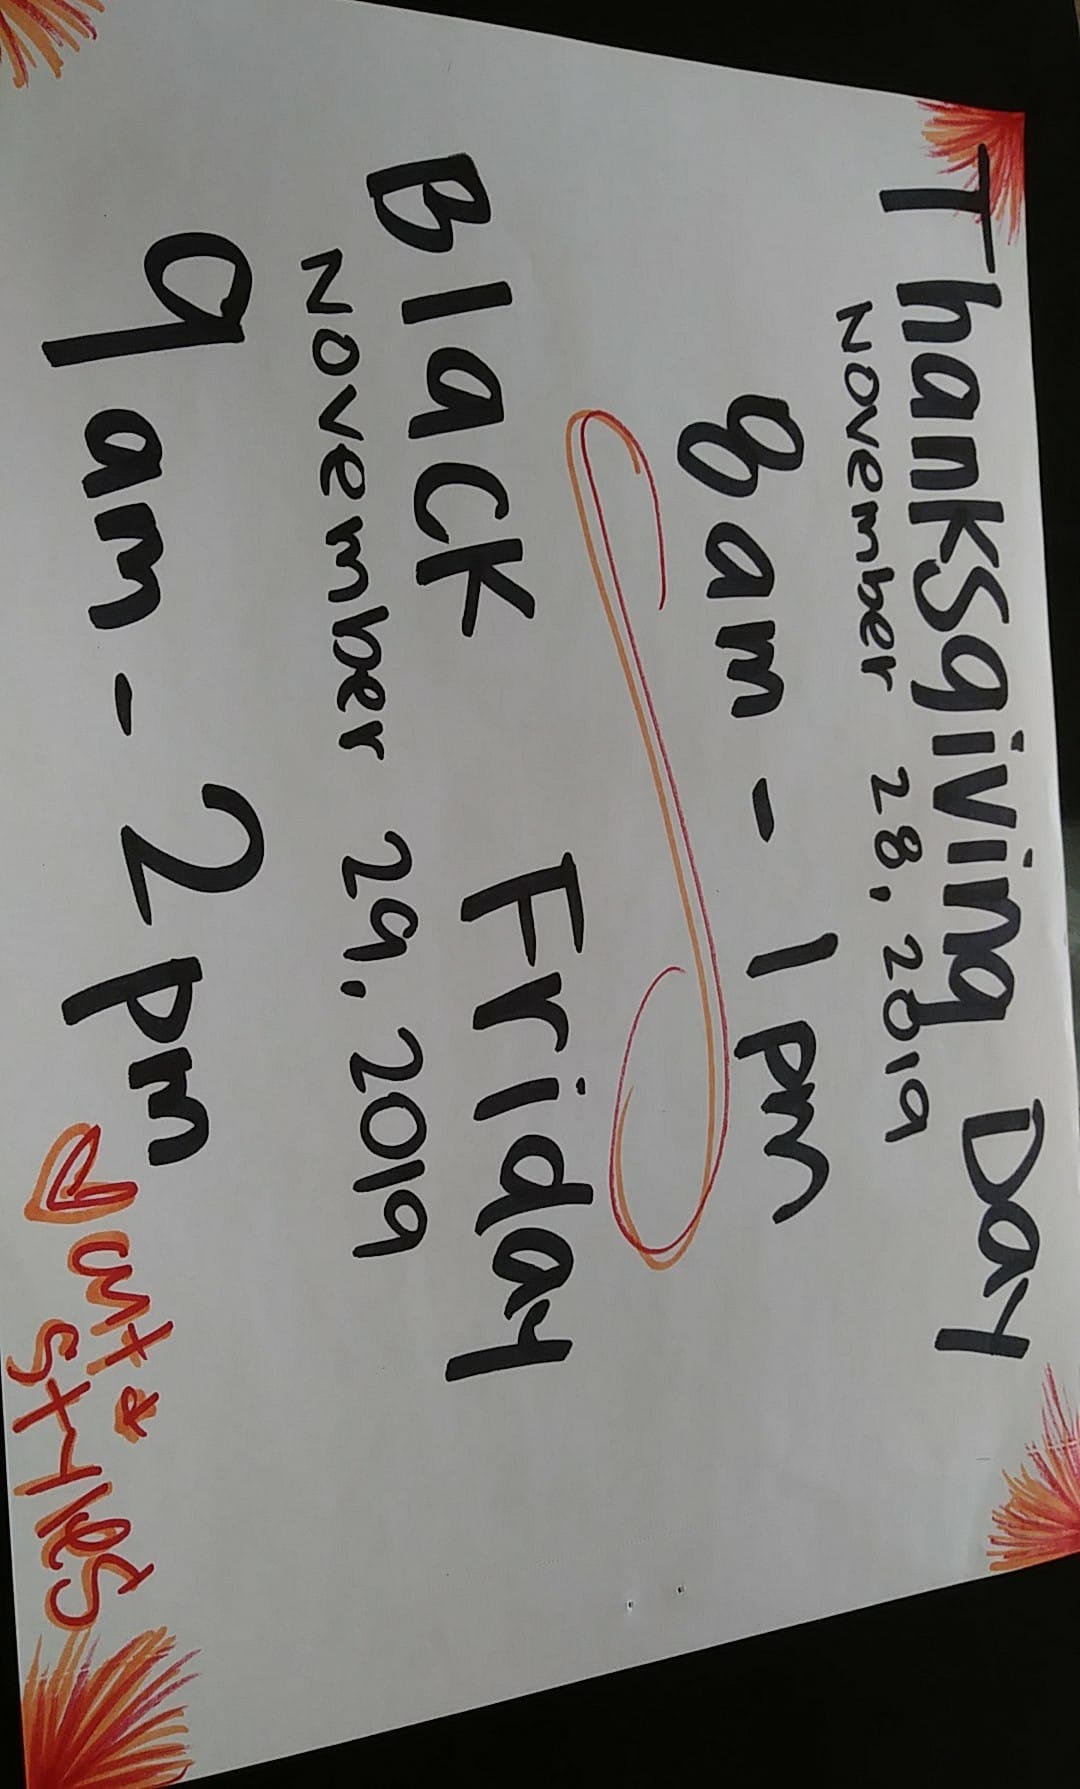 Thanksgiving Day
November 28, 2019
8am - 1pm
Black Friday
November 29, 2019
9am - 2pm
Styles